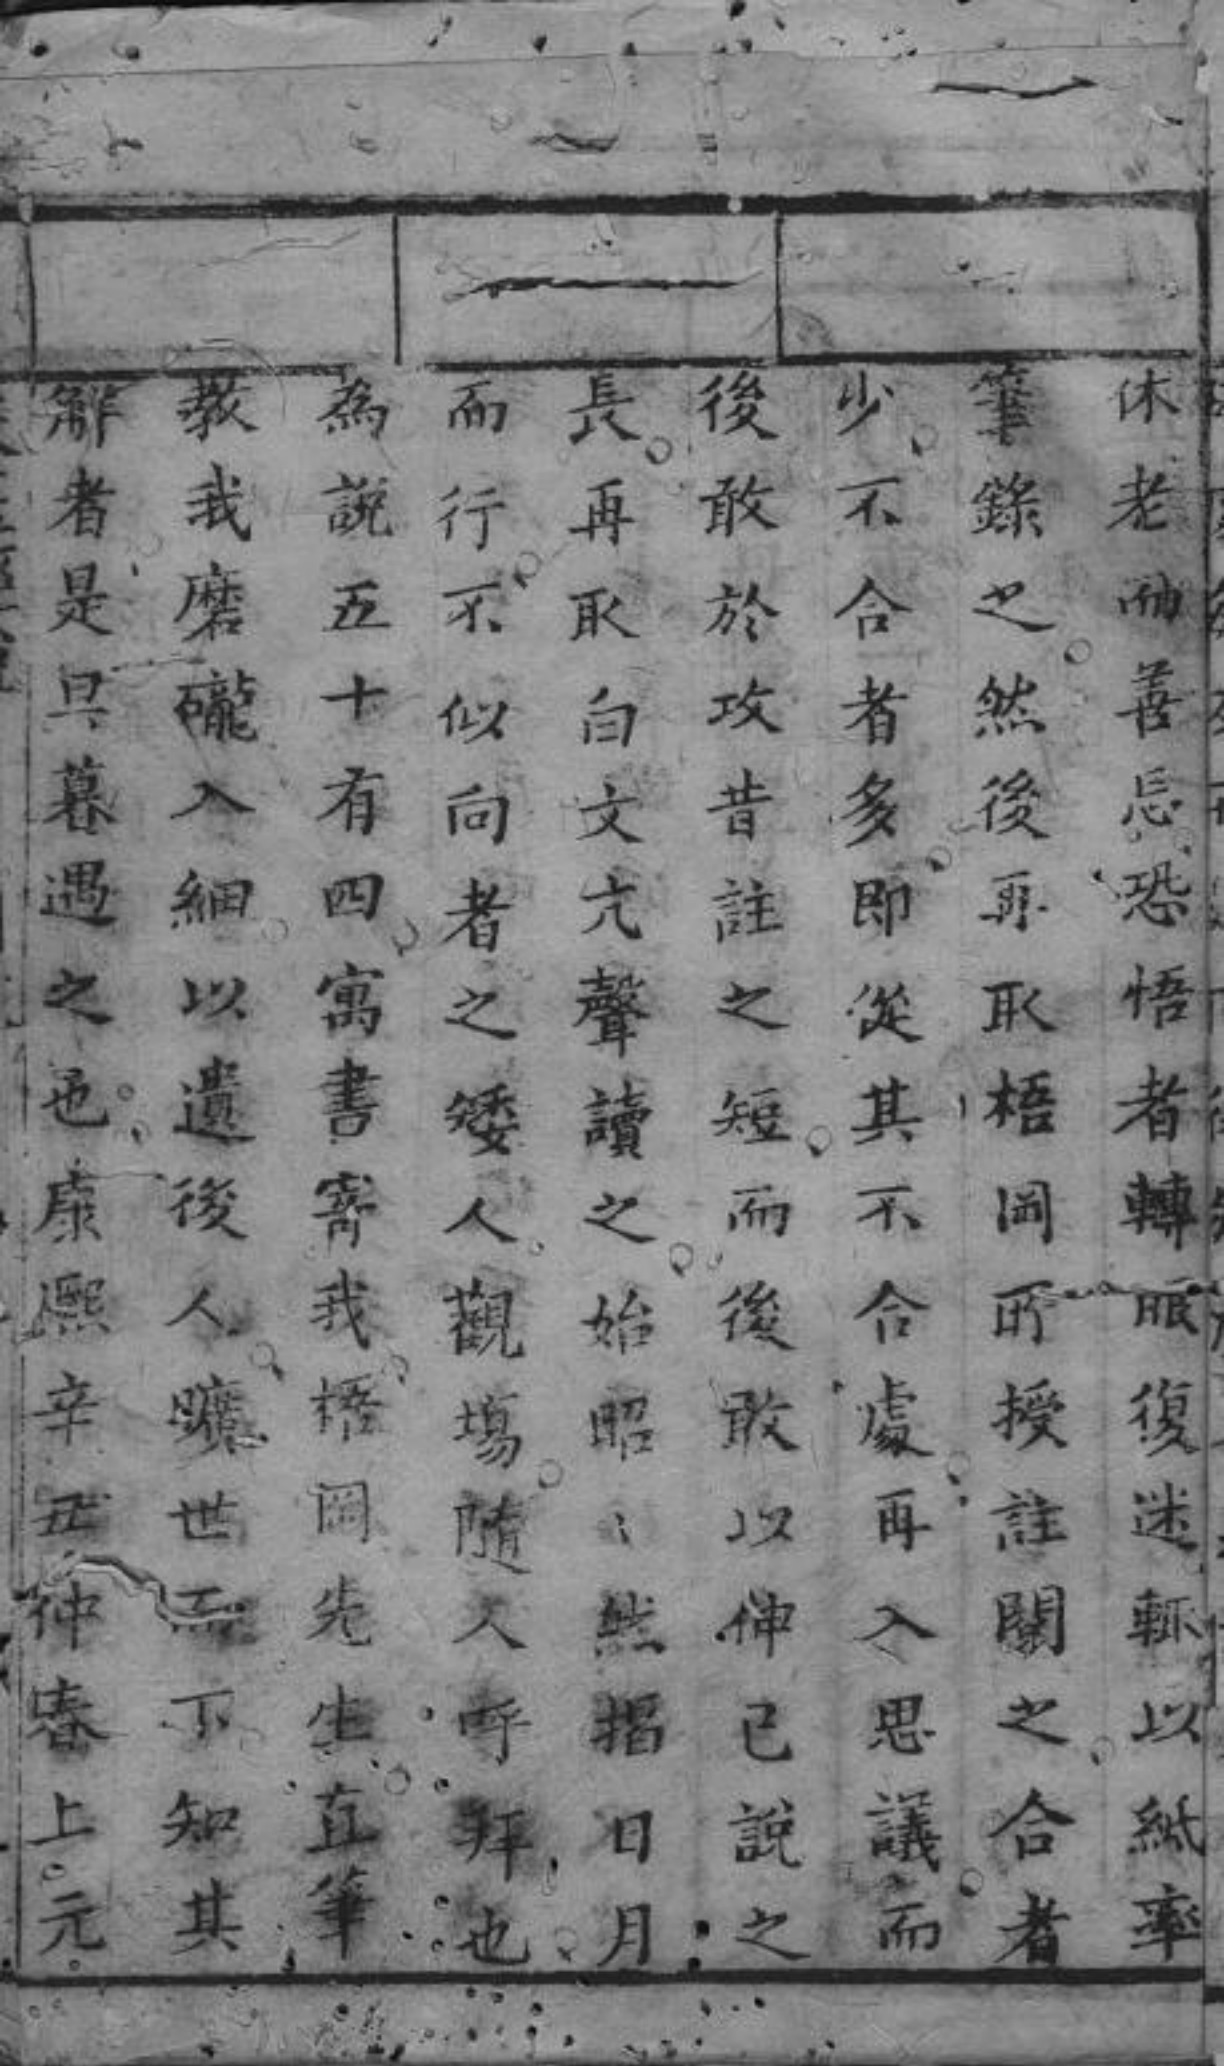 休老而善忘恐悟者轉眼復迷輒以紙率
筆錄之然後再取梧岡所授註闕之合者
少不合者多即從其不合處再入思議而
後敢於攻昔註之短而後敢以伸己說之
長再取白文亢聲讀之始昭〻然揭日月
而行不似向者之矮人觀塲隨人呼拜也
為說五十有四寓書寄我梧岡先生直筆
教我磨礲入細以遺後人曠世而下知其
解者是旦暮遇之也康熙辛丑仲春上元